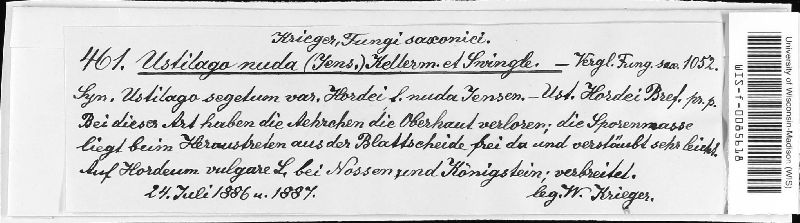 Krieger, Fungi saxonici.
461. Ustilago nuda (Jens.) Kellerm. et Swingle. — Vergl. Fung. sax. 1052.
Syn. Ustilago segetum var. Hordei f. nuda Jensen. — Ust. Hordei Bref. pr. p.
Bei dieser Art haben die Aehrchen die Oberhaut verloren; die Sporenmasse
liegt beim Heraustreten aus der Blattscheide frei da und verstäubt sehr leicht.
Auf Hordeum vulgare L. bei Nossen und Königstein; verbreitet.
24. Juli 1886 u. 1887.
leg. W. Krieger.
University of Wisconsin-Madison (WIS)
WIS-f-0085618